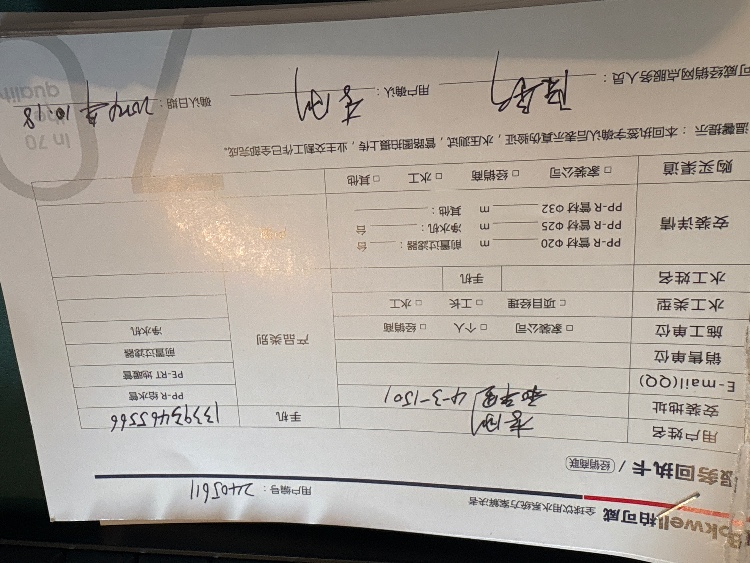 Bokwell柏可威 全球饮用水系统方案解决者
服务回执卡 / 经销商联 用户编号：2405611
用户姓名 李刚 手机 13393465566
安装地址 4-3-1501 PP-R 给水管
E-mail(QQ) PE-RT 地暖管
销售单位 产品类别 前置过滤器
施工单位 □ 家装公司 □ 个人 □ 经销商 净水机
水工类型 □ 项目经理 □ 工长 □ 水工
水工姓名 手机
安装详情 PP-R 管材 Φ20 m 前置过滤器： 台
PP-R 管材 Φ25 m 净水机： 台
PP-R 管材 Φ32 m 其他：
购买渠道 □ 家装公司 □ 经销商 □ 水工 □ 其他
温馨提示：本回执签字确认后表示真伪验证，水压测试，管路图拍摄上传，业主交割工作已全部完成。
可威经销网点服务人员： 用户确认：李刚 确认日期： 10.18
In 70
qualit